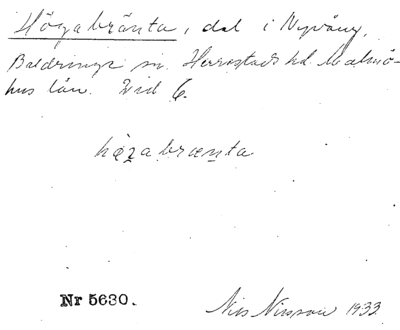 Högabränta, dal i Nyvång,
Baldringe sn. Herrestads hd. Malmö-
hus län. Vid 6.
høgabrænta
Nr 5630.
Nils Nilsson 1933